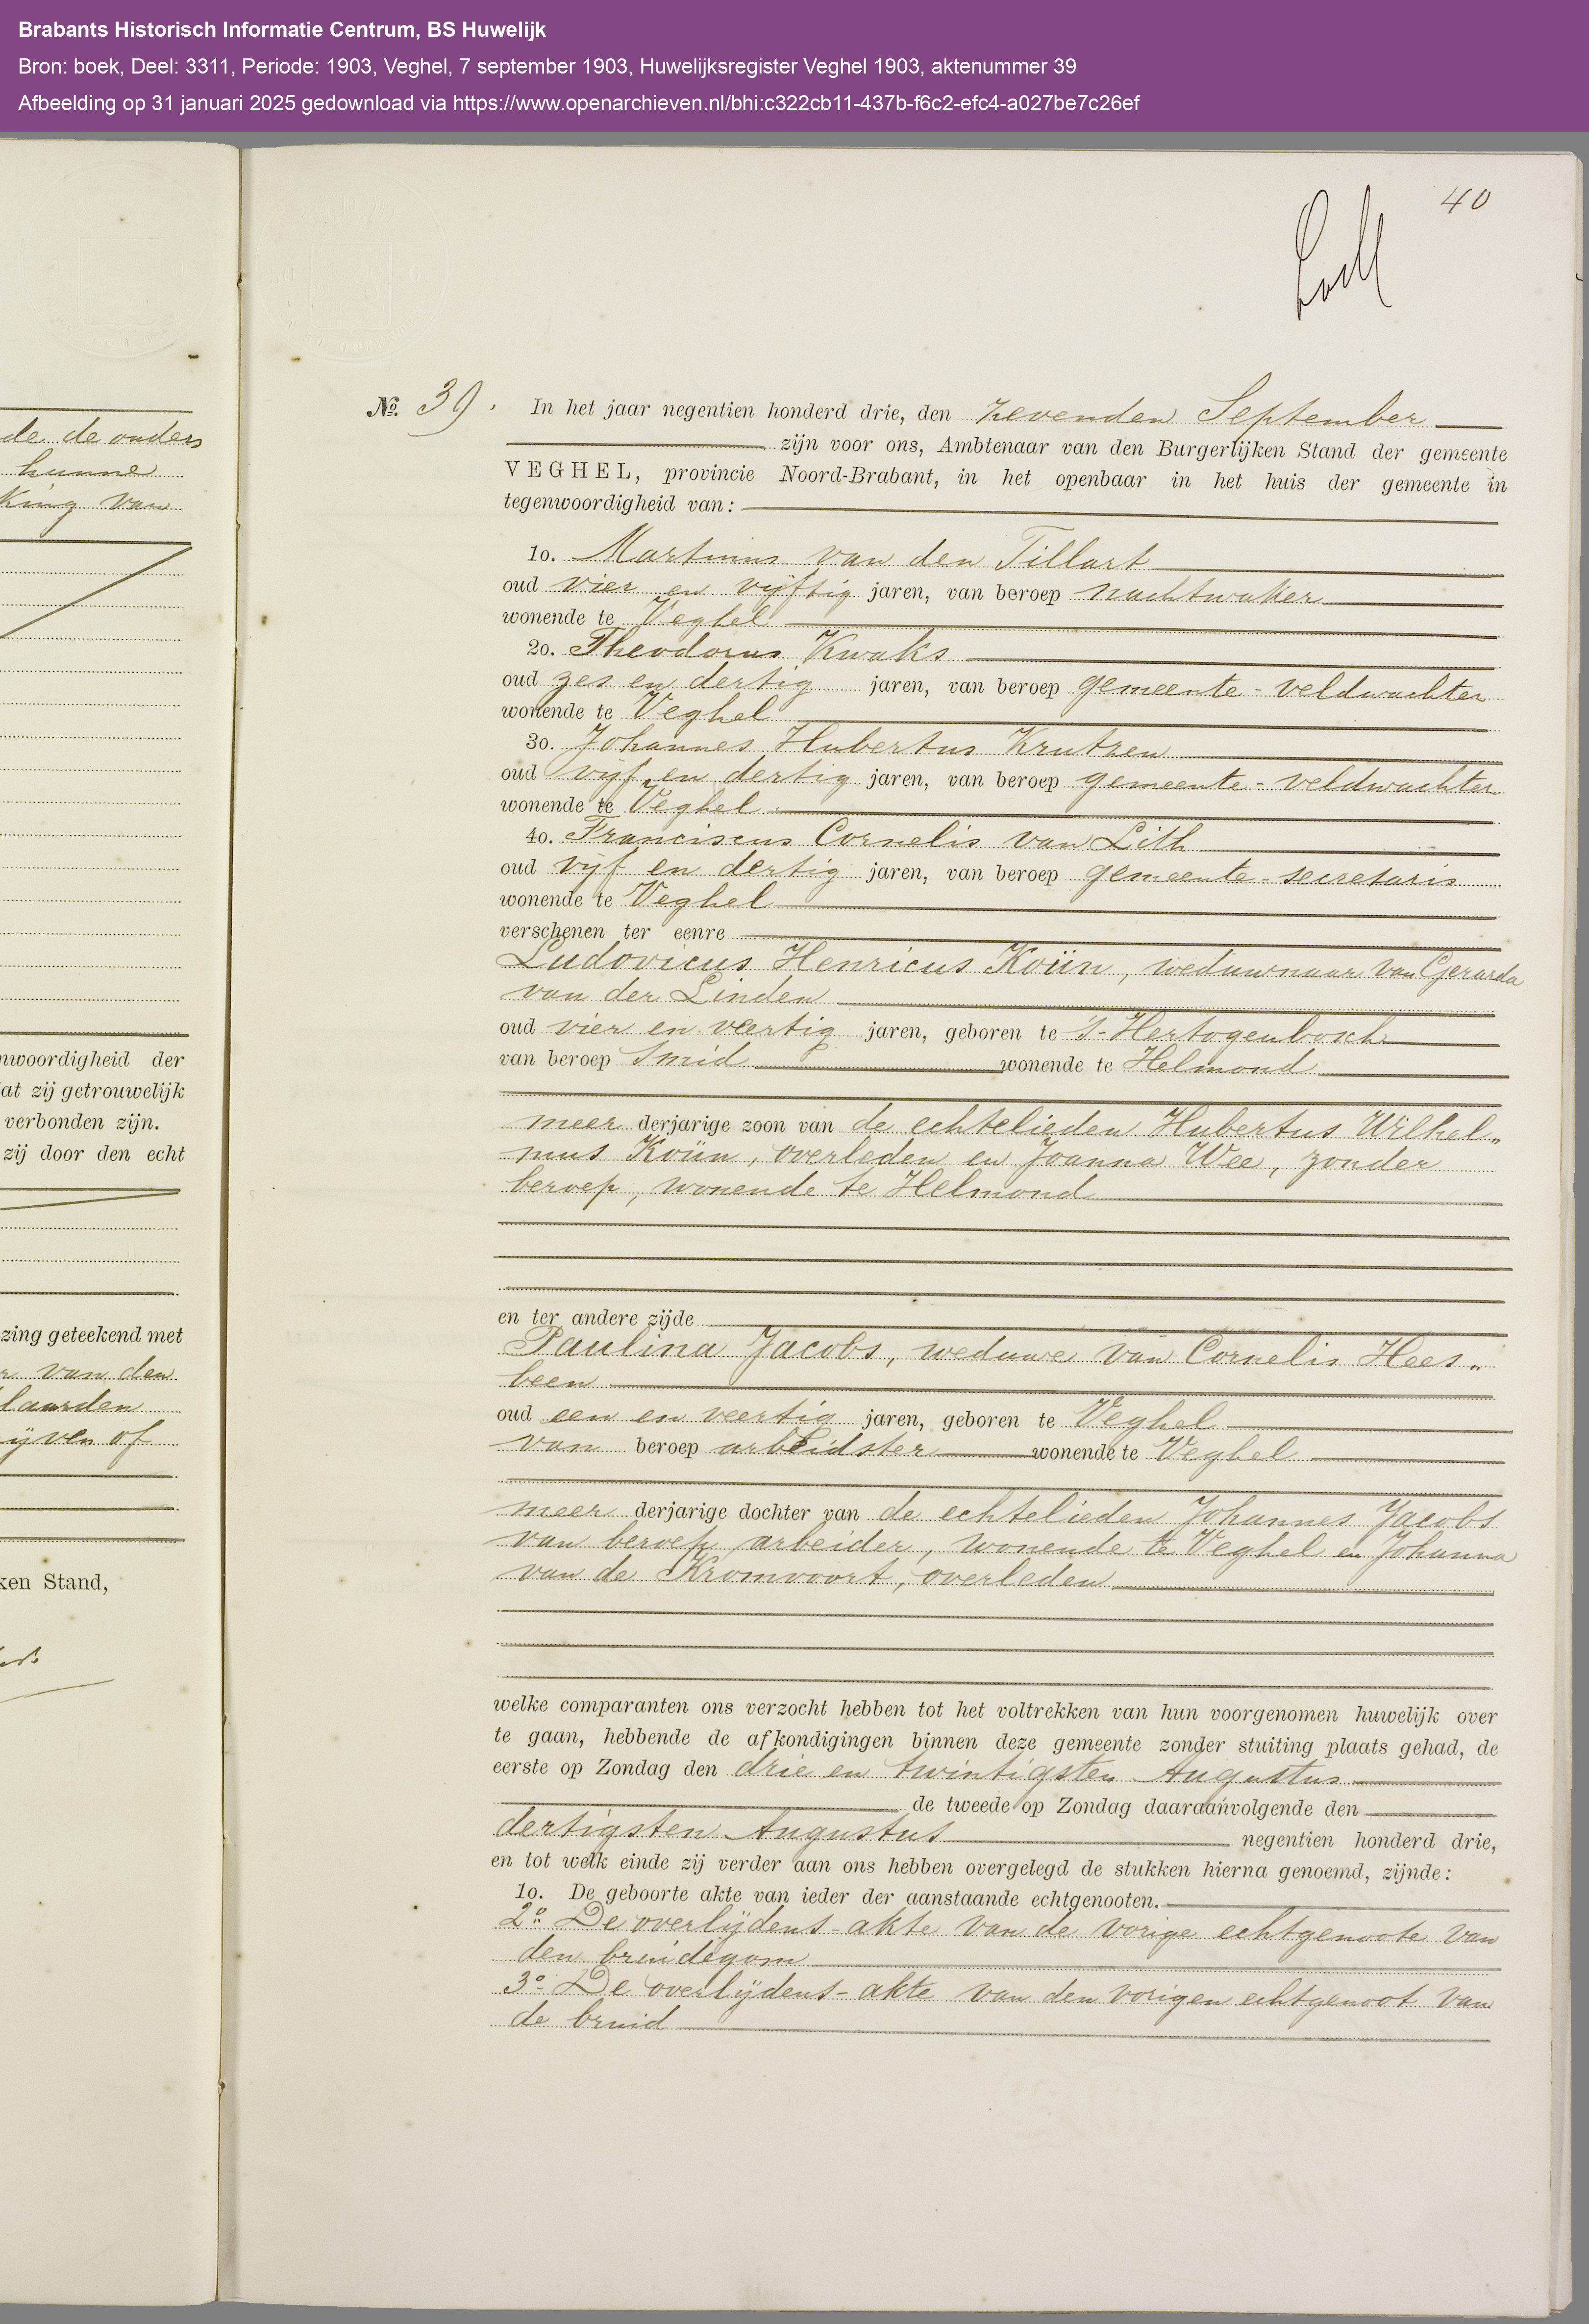 Brabants Historisch Informatie Centrum, BS Huwelijk
Bron: boek, Deel: 3311, Periode: 1903, Veghel, 7 september 1903, Huwelijksregister Veghel 1903, aktenummer 39
Afbeelding op 31 januari 2025 gedownload via https://www.openarchieven.nl/bhi:c322cb11-437b-f6c2-efc4-a027be7c26ef
de de ouders
hunne
king van
nwoordigheid der
at zij getrouwelijk
verbonden zijn.
zij door den echt
zing geteekend met
r van den
laarden
ijven of
ken Stand,
40
No. 39. In het jaar negentien honderd drie, den zevenden September
zijn voor ons, Ambtenaar van den Burgerlijken Stand der gemeente
VEGHEL, provincie Noord-Brabant, in het openbaar in het huis der gemeente in
tegenwoordigheid van:
1o. Martinus van den Tillart
oud vier en vijftig jaren, van beroep nachtwaker
wonende te Veghel
2o. Theodorus Kwaks
oud zes en dertig jaren, van beroep gemeente-veldwachter
wonende te Veghel
3o. Johannes Hubertus Krutzen
oud vijf en dertig jaren, van beroep gemeente-veldwachter
wonende te Veghel
4o. Franciscus Cornelis van Lith
oud vijf en dertig jaren, van beroep gemeente-secretaris
wonende te Veghel
verschenen ter eenre
Ludovicus Henricus Koün, weduwnaar van Gerarda
van der Linden
oud vier en veertig jaren, geboren te 's-Hertogenbosch
van beroep Smid wonende te Helmond
meer derjarige zoon van de echtelieden Hubertus Wilhel„
mus Koün, overleden en Joanna Wee, zonder
beroep, wonende te Helmond
en ter andere zijde
Paulina Jacobs, weduwe van Cornelis Hees„
been
oud een en veertig jaren, geboren te Veghel
van beroep arbeidster wonende te Veghel
meer derjarige dochter van de echtelieden Johannes Jacobs
van beroep arbeider, wonende te Veghel en Johanna
van de Kromvoort, overleden
welke comparanten ons verzocht hebben tot het voltrekken van hun voorgenomen huwelijk over
te gaan, hebbende de afkondigingen binnen deze gemeente zonder stuiting plaats gehad, de
eerste op Zondag den drie en twintigsten Augustus
de tweede op Zondag daaraanvolgende den
dertigsten Augustus negentien honderd drie,
en tot welk einde zij verder aan ons hebben overgelegd de stukken hierna genoemd, zijnde:
1o. De geboorte akte van ieder der aanstaande echtgenooten.
2o. De overlijdens-akte van de vorige echtgenoote van
den bruidegom
3o. De overlijdens-akte van den vorigen echtgenoot van
de bruid